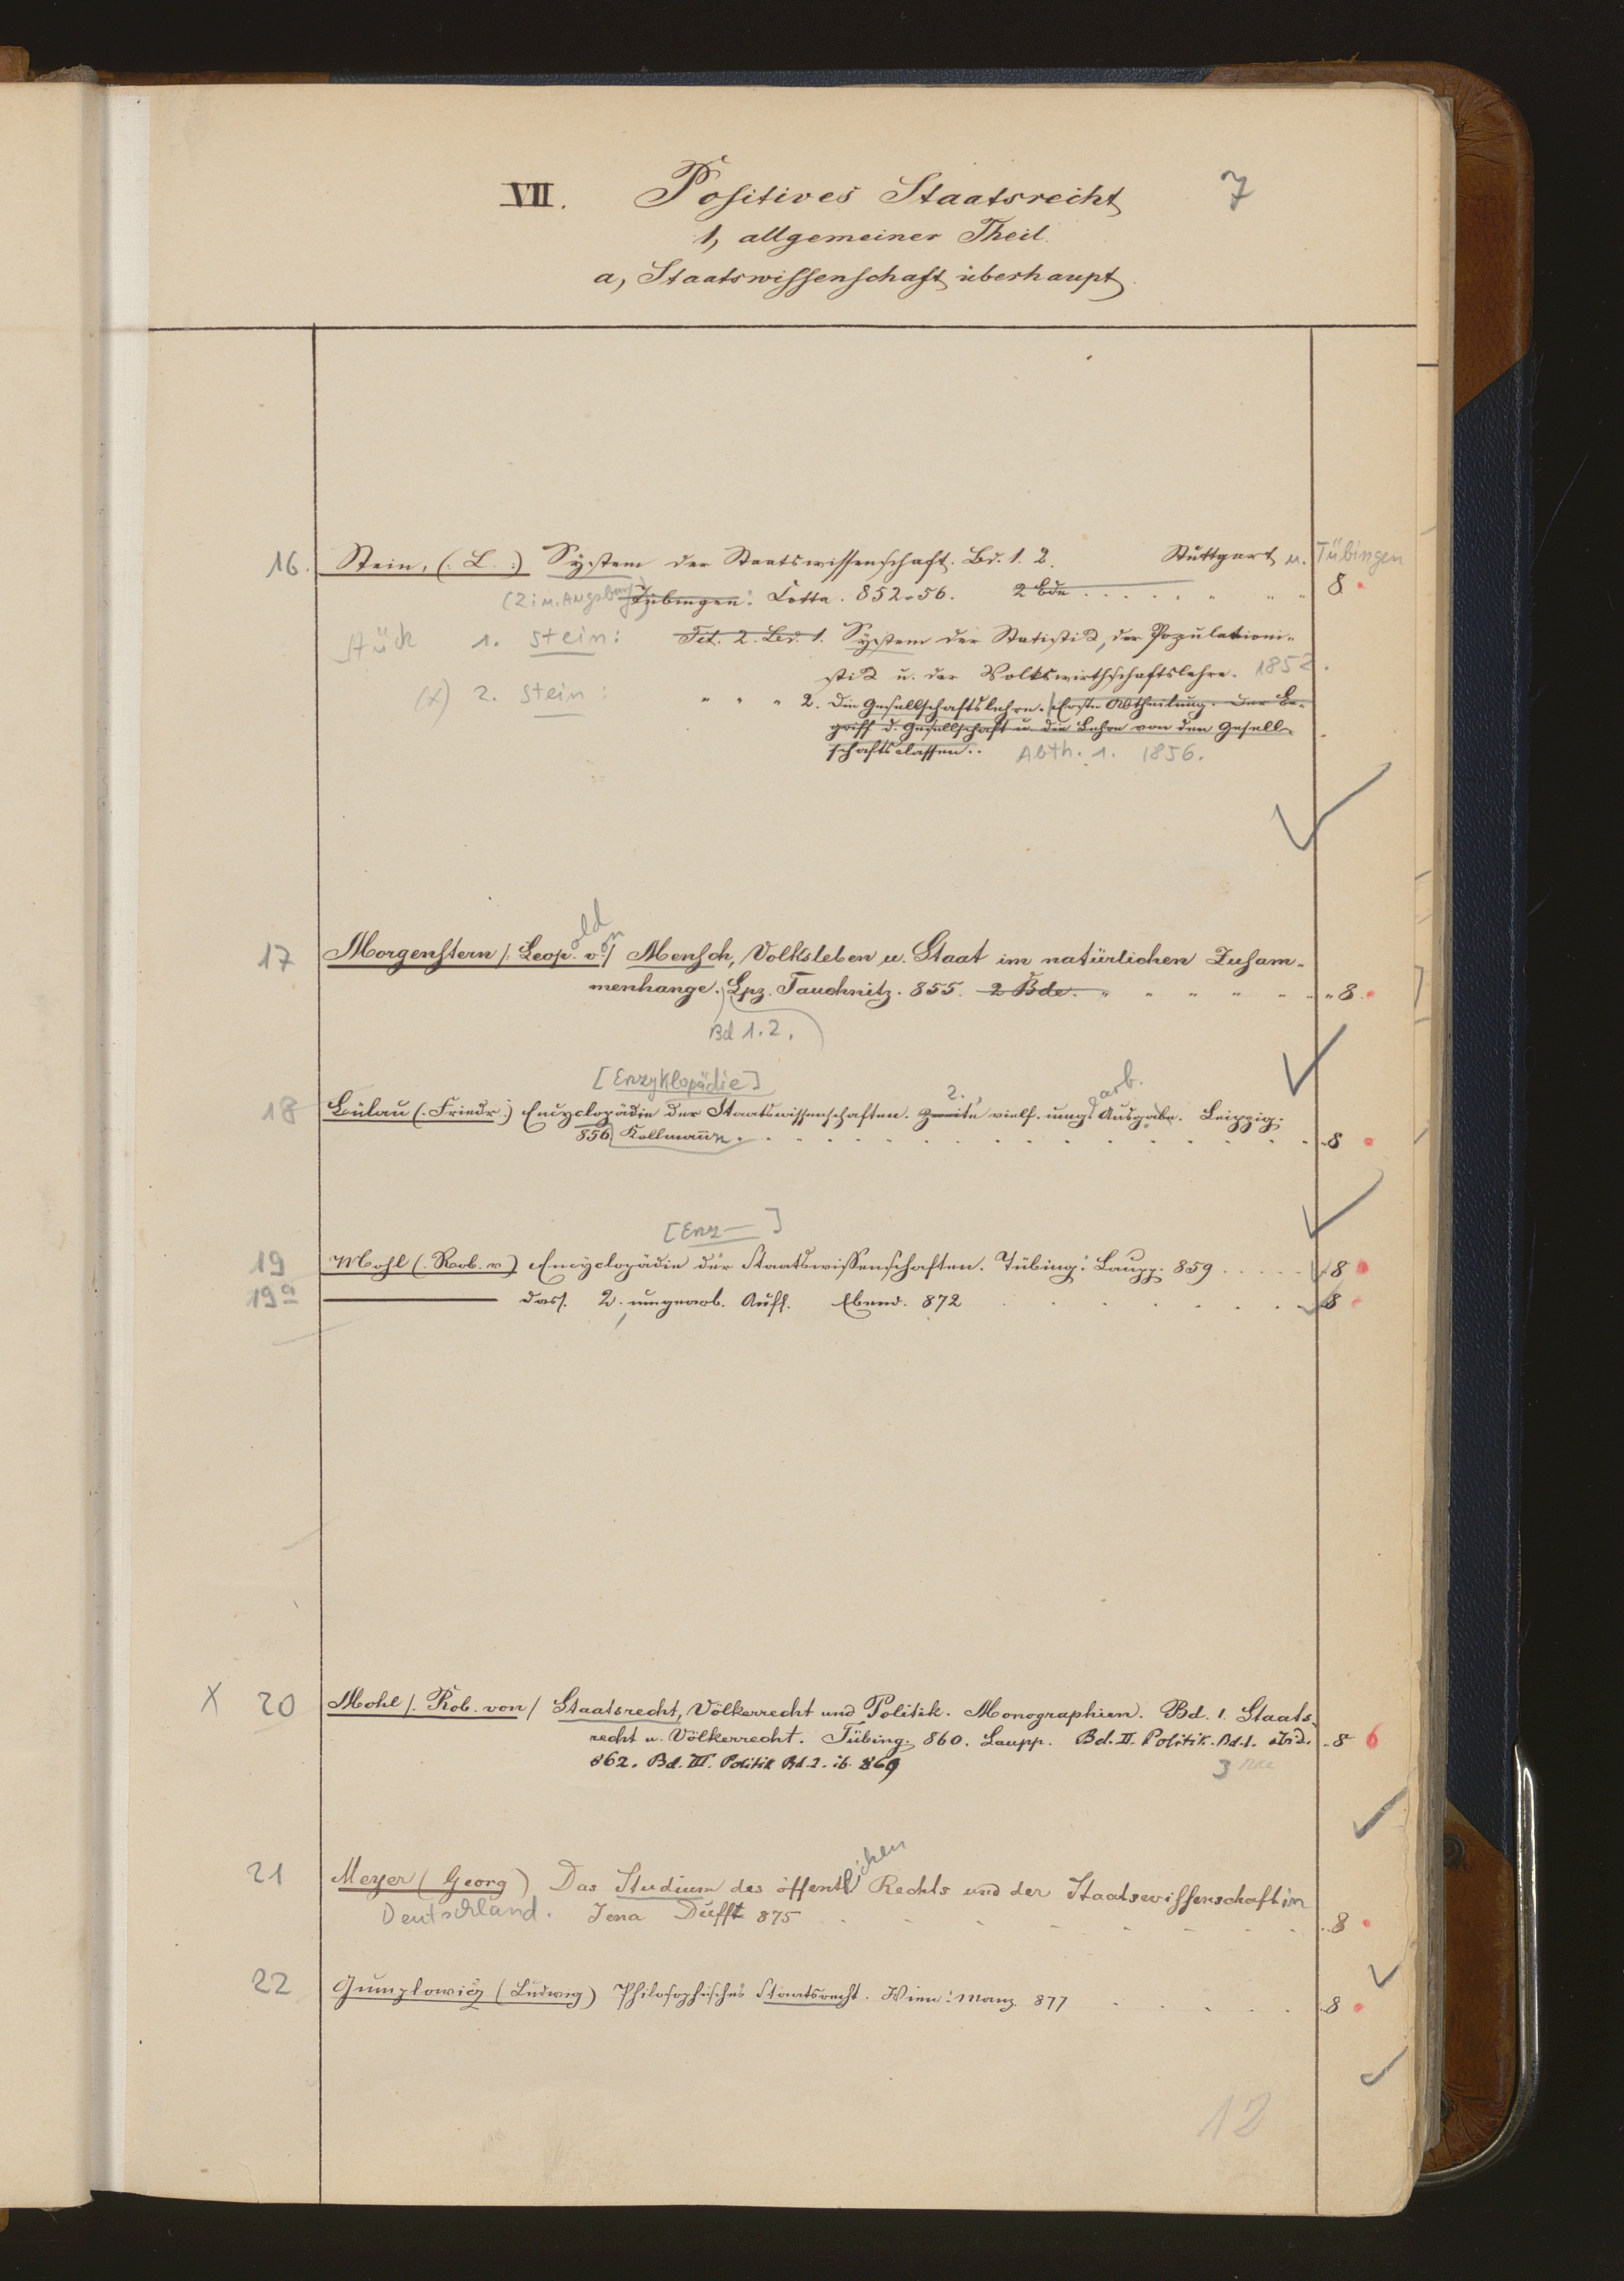 VII. Positives Staatsrecht 7
1, allgemeiner Theil.
a, Staatswissenschaft überhaupt.
16. Stein, (: L. :) System der Staatswissenschaft. Bd. 1. 2. Stuttgart u. Tübingen
(2: u. Augsburg) Tübingen: Cotta. 852-56. 2 Bde 8.
Stück 1. Stein: Tit. 2. Bd. 1. System der Statistik, der Populationi-
stik u. der Volkswirthschaftslehre. 1852.
(x) 2. Stein: " " " 2. Die Gesellschaftslehre. Erste Abtheilung. Der Be-
griff d. Gesellschaft u. die Lehre von den Gesell-
schaftsclassen.. Abth. 1. 1856.
17 Morgenstern /: Leopold von / Mensch, Volksleben u. Staat im natürlichen Zusam-
menhange. Lpz. Tauchnitz. 855. 2 Bde. " " " " " " " 8.
Bd 1. 2.
[Enzyklopädie]
18 Bülau (: Friedr :) Encyclopädie der Staatswissenschaften. Zweite 2., vielf. umgearb. Ausgabe. Leipzig:
856 Kollmann. 8
[Enz— ]
19 Mohl (: Rob. v) Encyclopädie der Staatswissenschaften. Tübing: Laupp. 859 8
19a dass. 2. umgearb. Aufl. Ebend. 872 8
X 20 Mohl /. Rob. von / Staatsrecht, Völkerrecht und Politik. Monographien. Bd. 1. Staats-
recht u. Völkerrecht. Tübing. 860. Laupp. Bd. II. Politik. Bd. 1. ibid. 8 6
862. Bd. III. Politik Bd. 2. ib. 869 3
21 Meyer (Georg) Das Studium des öffentlichen Rechts und der Staatswissenschaft in
Deutschland. Jena Dufft 875 8
22 Gumplowicz (Ludwig) Philosophisches Staatsrecht. Wien: Manz. 877 8
12